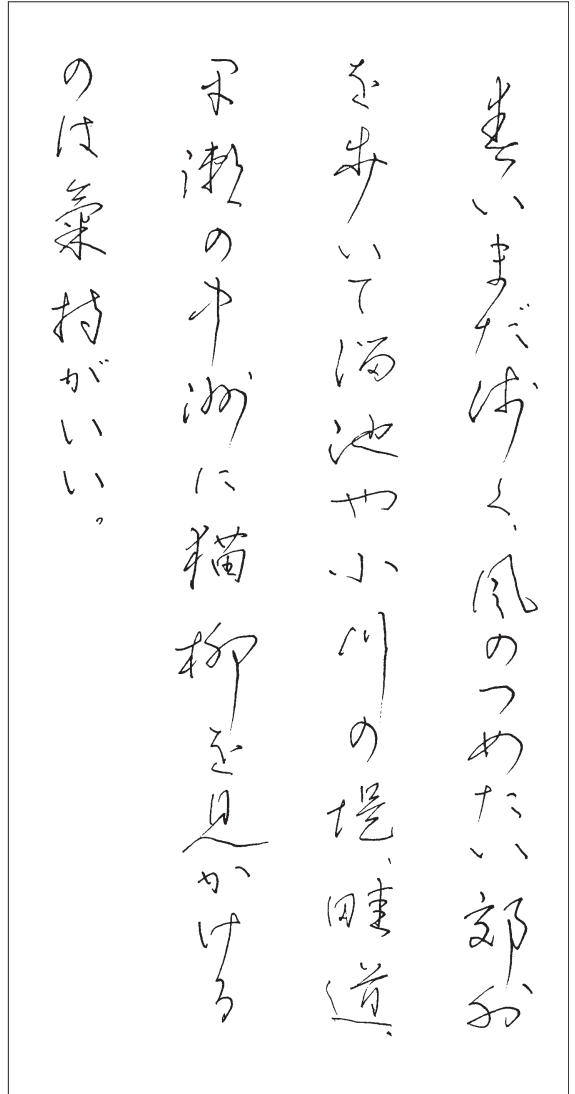 春いまだ浅く、風のつめたい郊外
を歩いて溜池や小川の堤、畦道、
早瀬の中洲に猫柳を見かける
のは氣持がいい。